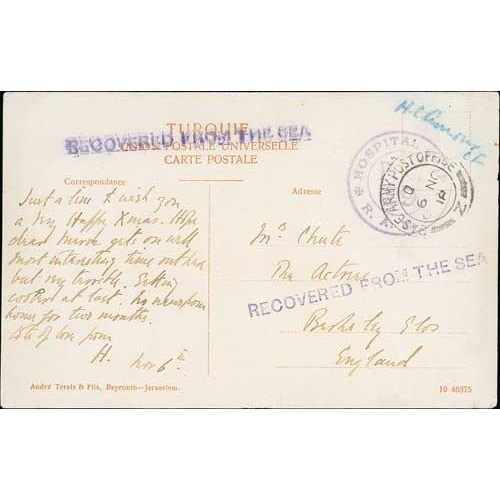 TURQUIE
RECOVERED FROM THE SEA
UNION POSTALE UNIVERSELLE
CARTE POSTALE
Correspondance
Adresse
Just a line to wish you
a very Happy Xmas. Hope
gets on well
most interesting time out here
but very Getting
cooler at last. No news from
home for two months.
Lots of love from
H. Nov 6th
HOSPITAL
R. A.
BASE ARMY POST OFFICE
6 NO
18
Z
Mrs Chute
The
RECOVERED FROM THE SEA
Berkeley Glos
England
André Terzis & Fils, Beyrouth—Jerusalem.
10 46375